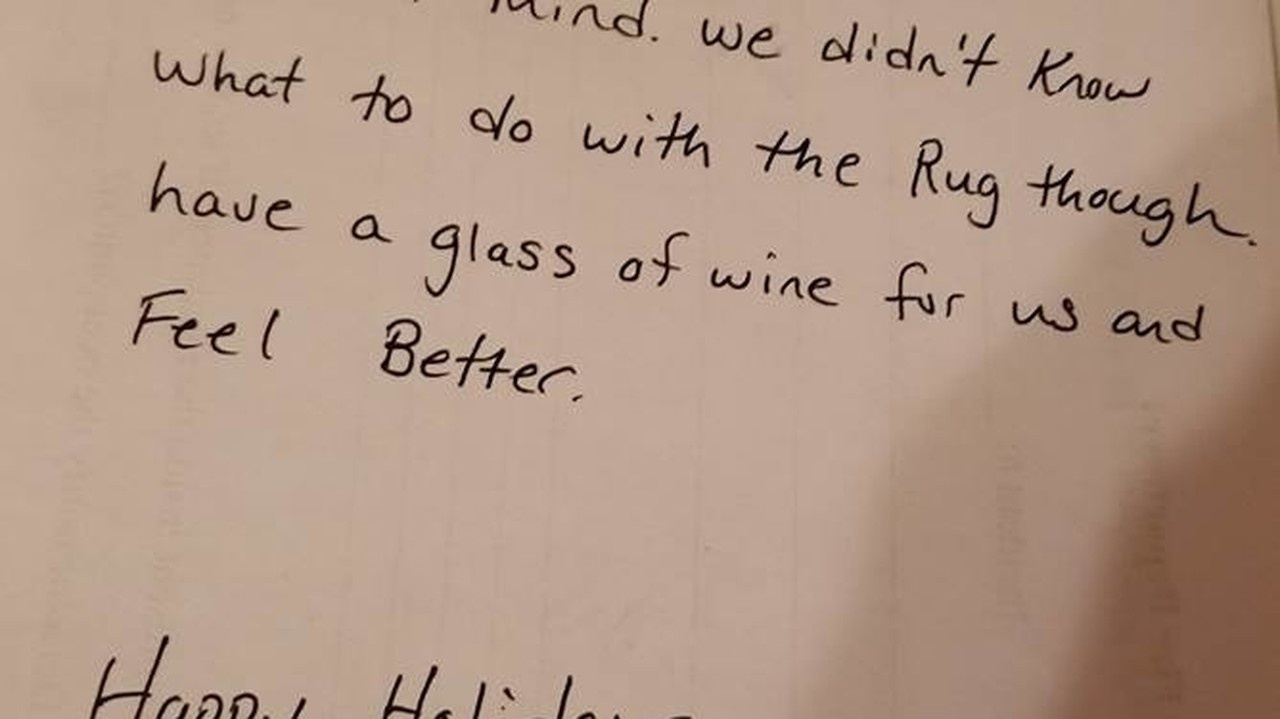 mind. we didn't know
what to do with the Rug though.
have a glass of wine for us and
Feel Better.
Happy Holidays